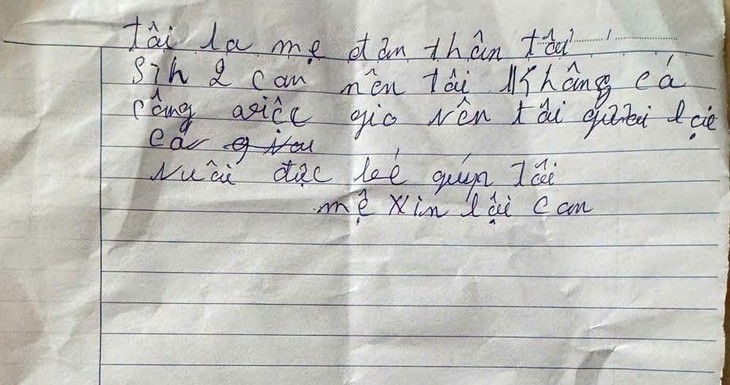 tôi la mẹ đan thân tôi
sih 2 can nên tôi không cá
công việc gio nên tôi gửi lại
nuôi đức bé giúp tôi
mẹ xin lội can